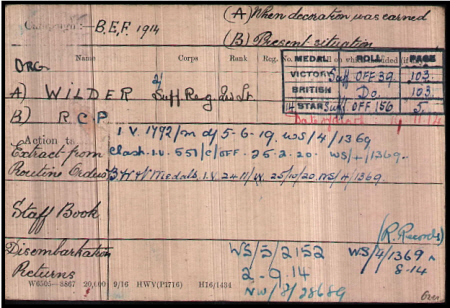 Campaign:- B.E.F. 1914
(A) When decoration was earned
(B) Present situation
Name Corps Rank Reg. No.
MEDAL ROLL PAGE
VICTORY Suff OFF 39 103.
BRITISH Do. 103.
14 STAR Suff OFF 156 5
A) WILDER 2/ Suff Reg
B) R.C.P.
Action to I.V. 1792/m of 5-6-19. WS/4/1369
Extract from Clash. I.V. 551/C/OFF. 25.2.20. WS/4/1369.
Routine Orders B.W.&V. Medals I.V. 2411/ 25/10/20. WS/4/1369
Staff Book
(R. Records)
Disembarkation WS/5/2152 WS/4/1369
Returns 2-9-14 8-14
NW/8/28689
W6505—8867 20,000 9/16 HWV(P1716) H16/1434